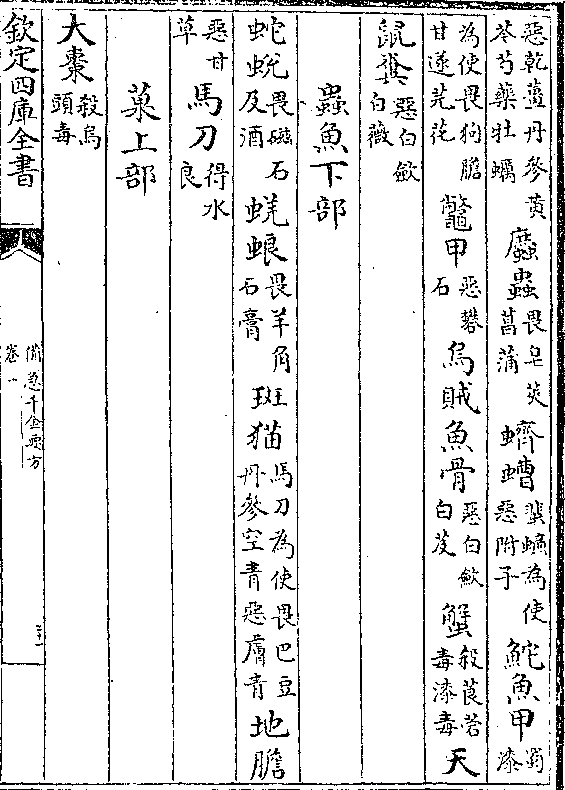 惡乾薑丹參黃芩芍藥牡蠣䗪蟲畏皂莢菖蒲蠐螬蜚蠊為使惡附子鮀魚甲蜀漆
為使畏狗膽甘遂芫花鼈甲惡礬石烏賊魚骨惡白斂白芨蟹殺莨菪毒漆毒天
鼠糞惡白斂白薇
蟲魚下部
蛇蛻畏磁石及酒蜣蜋畏羊角石膏斑猫馬刀為使畏巴豆丹參空青惡膚青地膽
惡甘草馬刀得水良
菓上部
大棗殺烏頭毒
欽定四庫全書
備急千金要方
卷一